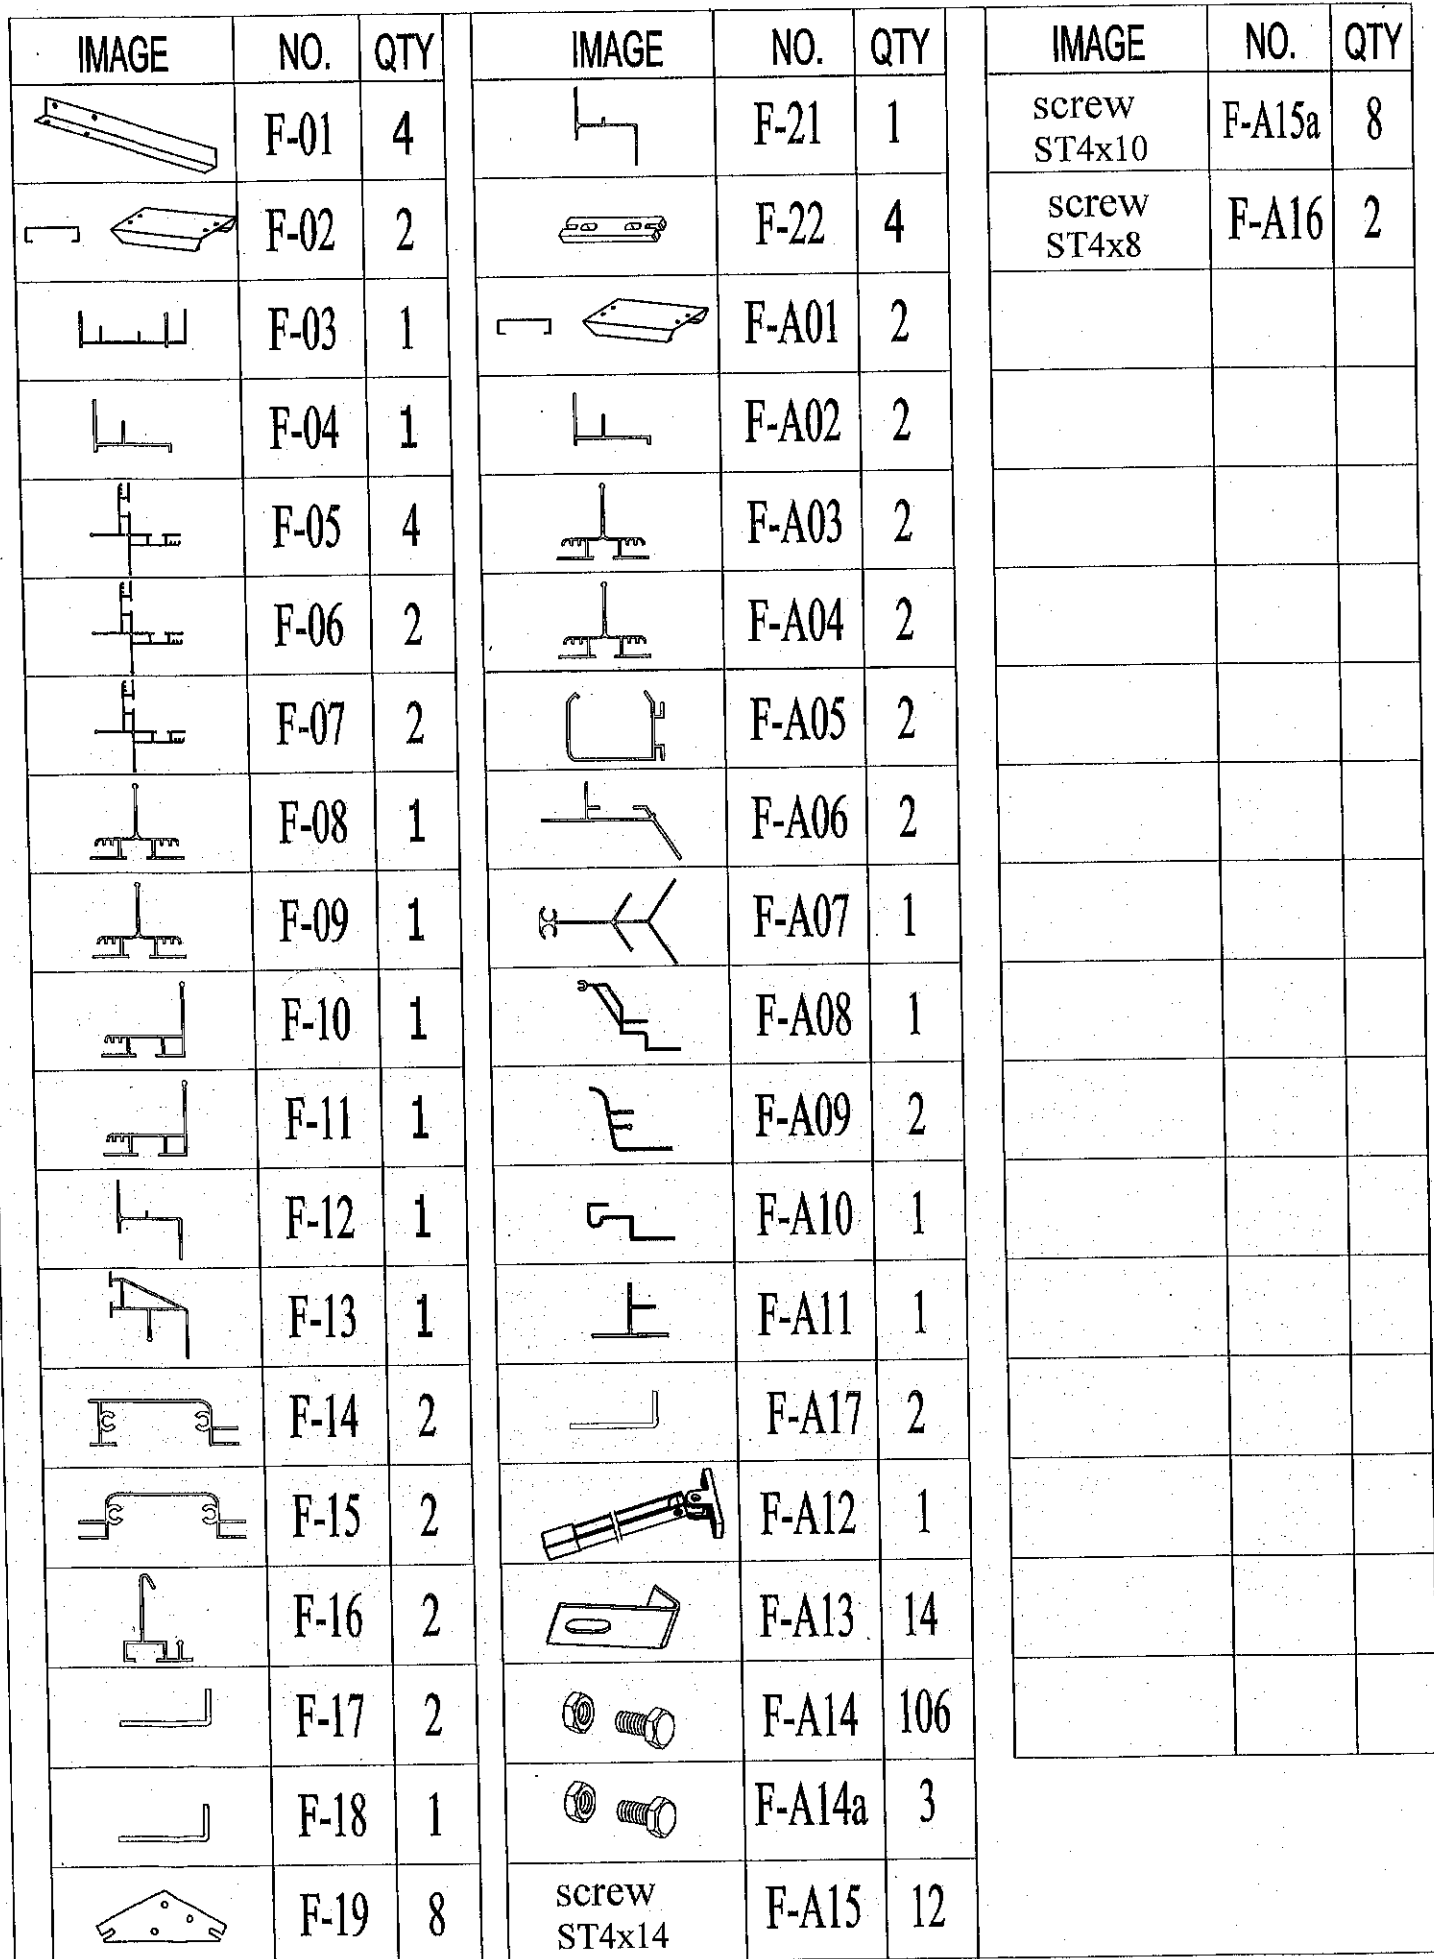 IMAGE NO. QTY
F-01 4
F-02 2
F-03 1
F-04 1
F-05 4
F-06 2
F-07 2
F-08 1
F-09 1
F-10 1
F-11 1
F-12 1
F-13 1
F-14 2
F-15 2
F-16 2
F-17 2
F-18 1
F-19 8
IMAGE NO. QTY
F-21 1
F-22 4
F-A01 2
F-A02 2
F-A03 2
F-A04 2
F-A05 2
F-A06 2
F-A07 1
F-A08 1
F-A09 2
F-A10 1
F-A11 1
F-A17 2
F-A12 1
F-A13 14
F-A14 106
F-A14a 3
screw
ST4x14 F-A15 12
IMAGE NO. QTY
screw
ST4x10 F-A15a 8
screw
ST4x8 F-A16 2